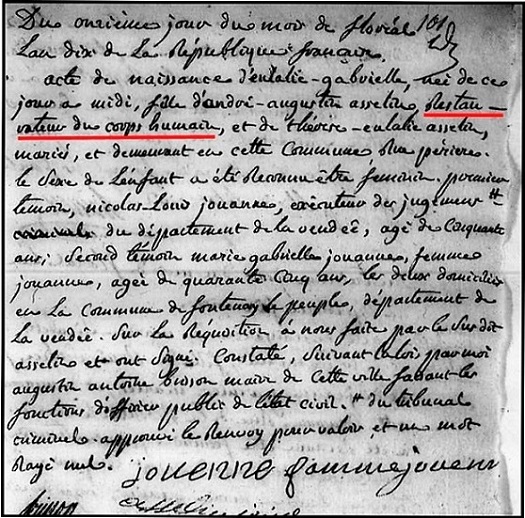 Du onzieme jour du mois de floréal 101
L'an dix de La République française.
acte de naissance d'eulalie-gabrielle, née de ce
jour a midi, fille d'andré-augustin asselin, Restau-
rateur du corps humain, et de thérèse-eulalie asselin,
mariés, et demeurant en cette Commune Rue périere.
le Sexe de L'enfant a été Reconnu être feminin. premier
temoin, nicolas-Louis jouanne, exécuteur des jugemens #
criminels du département de la vendeê, agé de Cinquante
ans; Second témoin marie gabrielle jouanne, femme
jouanne, ageé de quarante Cinq ans, les deux domiciliés
en La Commune de fontenay le peuple, département de
La vendeê. Sur La Requisition a nous faite par le Sus dit
asselin et ont Signé. Constaté, Suivant la loi par moi
augustin antoine maire de Cette ville faisant les
fonctions d'officier public de l'état civil. # du tribunal
criminel. approuvé le Renvoy pour valoir, et un mot
Rayé nul. jouenne fammejouenn